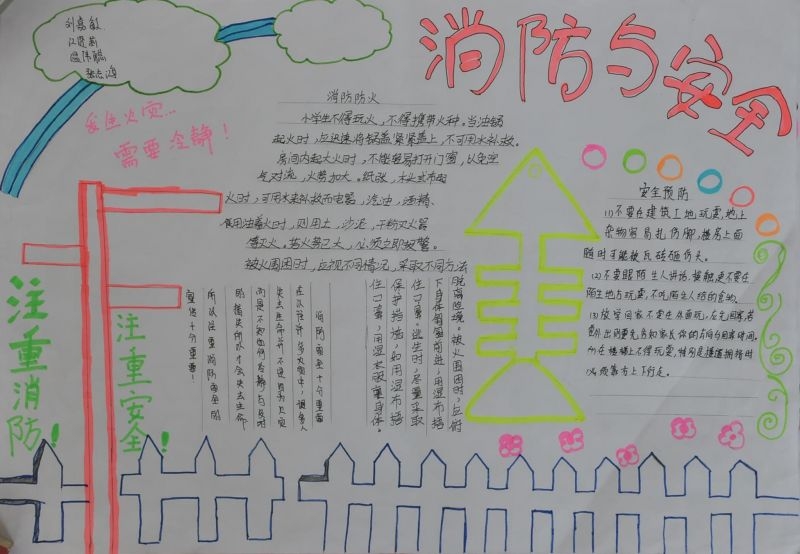 消防与安全
刘嘉敏
发生火灾…
需要冷静！
消防防火
小学生不得玩火，不得携带火种。当油锅
起火时，应迅速将锅盖紧紧盖上，不可用水扑救。
房间内起大火时，不能轻易打开门窗，以免空
气对流，火势加大。纸张，木头或布
火时，可用水来扑救而电器，汽油，酒精、
食用油着火时，则用土，沙泥，干粉灭火器
等灭火。若火势已大，必须立即报警。
被火围困时，应视不同情况，采取不同方法
脱离险境。被火围困时，应俯
下身体匍匐前进，用湿布捂
住口鼻。逃生时，尽量采取
保护措施，如用湿布捂
住口鼻，用湿衣服裹身体。
消防安全十分重要
所以注重消防安全的
宣传十分重要！
安全预防
(1)不要在建筑工地玩耍，地上
杂物容易扎伤脚，楼房上面
随时可能被瓦砖砸伤头。
(2)不要跟陌生人讲话，接触更不要在
陌生地方玩耍，不吃陌生人给的食物。
(3)放学回家不要在外面玩，应先回家，若
要外出则要先告知家长你的去向与回家时间。
所在楼梯上不得玩耍，特别是楼道拥挤时
必须靠右上下行走。
注重消防！
注重安全！